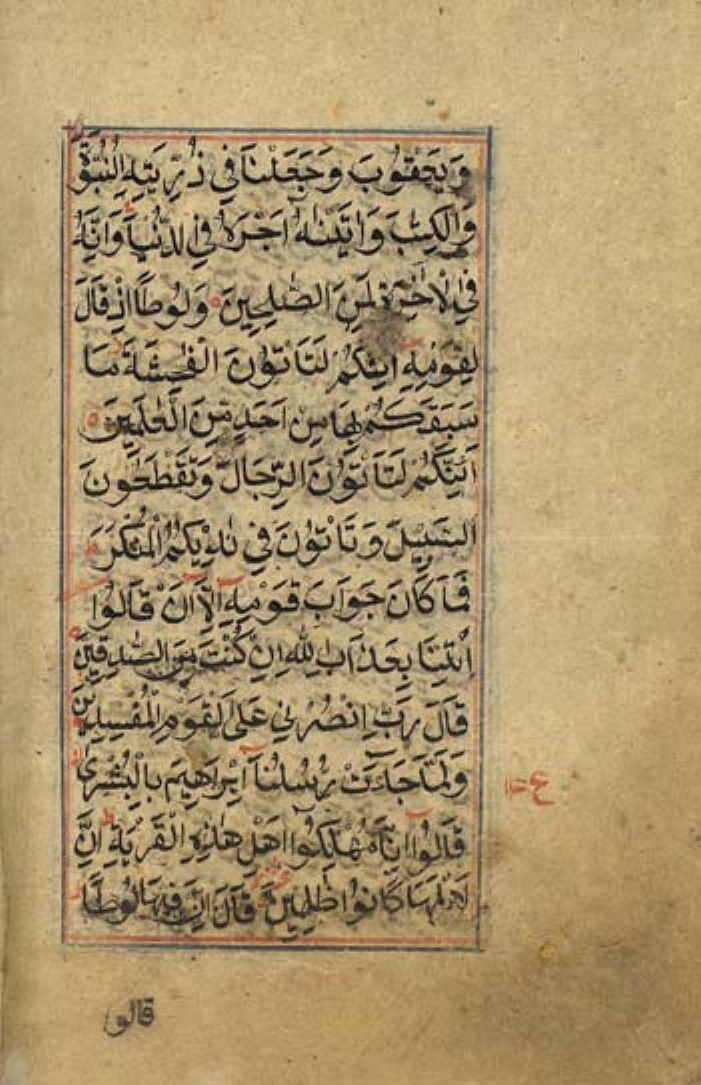 وَيَعْقُوبَ وَجَعَلْنَا فِي ذُرِّيَّتِهِ النُّبُوَّةَ
وَالْكِتٰبَ وَاٰتَيْنٰهُ اَجْرَهُ فِي الدُّنْيَا وَاِنَّهُ
فِي الْاٰخِرَةِ لَمِنَ الصّٰلِحِينَ وَلُوطًا اِذْ قَالَ
لِقَوْمِهِ اِنَّكُمْ لَتَاْتُوْنَ الْفٰحِشَةَ مَا
سَبَقَكُمْ بِهَا مِنْ اَحَدٍ مِّنَ الْعٰلَمِينَ
اَئِنَّكُمْ لَتَاْتُوْنَ الرِّجَالَ وَتَقْطَعُونَ
السَّبِيلَ وَتَاْتُوْنَ فِي نَادِيكُمُ الْمُنْكَرَ
فَمَا كَانَ جَوَابَ قَوْمِهِ اِلَّا اَنْ قَالُوا
ائْتِنَا بِعَذَابِ اللّٰهِ اِنْ كُنْتَ مِنَ الصّٰدِقِينَ
قَالَ رَبِّ انْصُرْنِي عَلَى الْقَوْمِ الْمُفْسِدِينَ
وَلَمَّا جَاءَتْ رُسُلُنَا اِبْرَاهِيمَ بِالْبُشْرٰى
قَالُوا اِنَّا مُهْلِكُوا اَهْلِ هٰذِهِ الْقَرْيَةِ اِنَّ
اَهْلَهَا كَانُوا ظٰلِمِينَ قَالَ اِنَّ فِيهَا لُوطًا
قالو